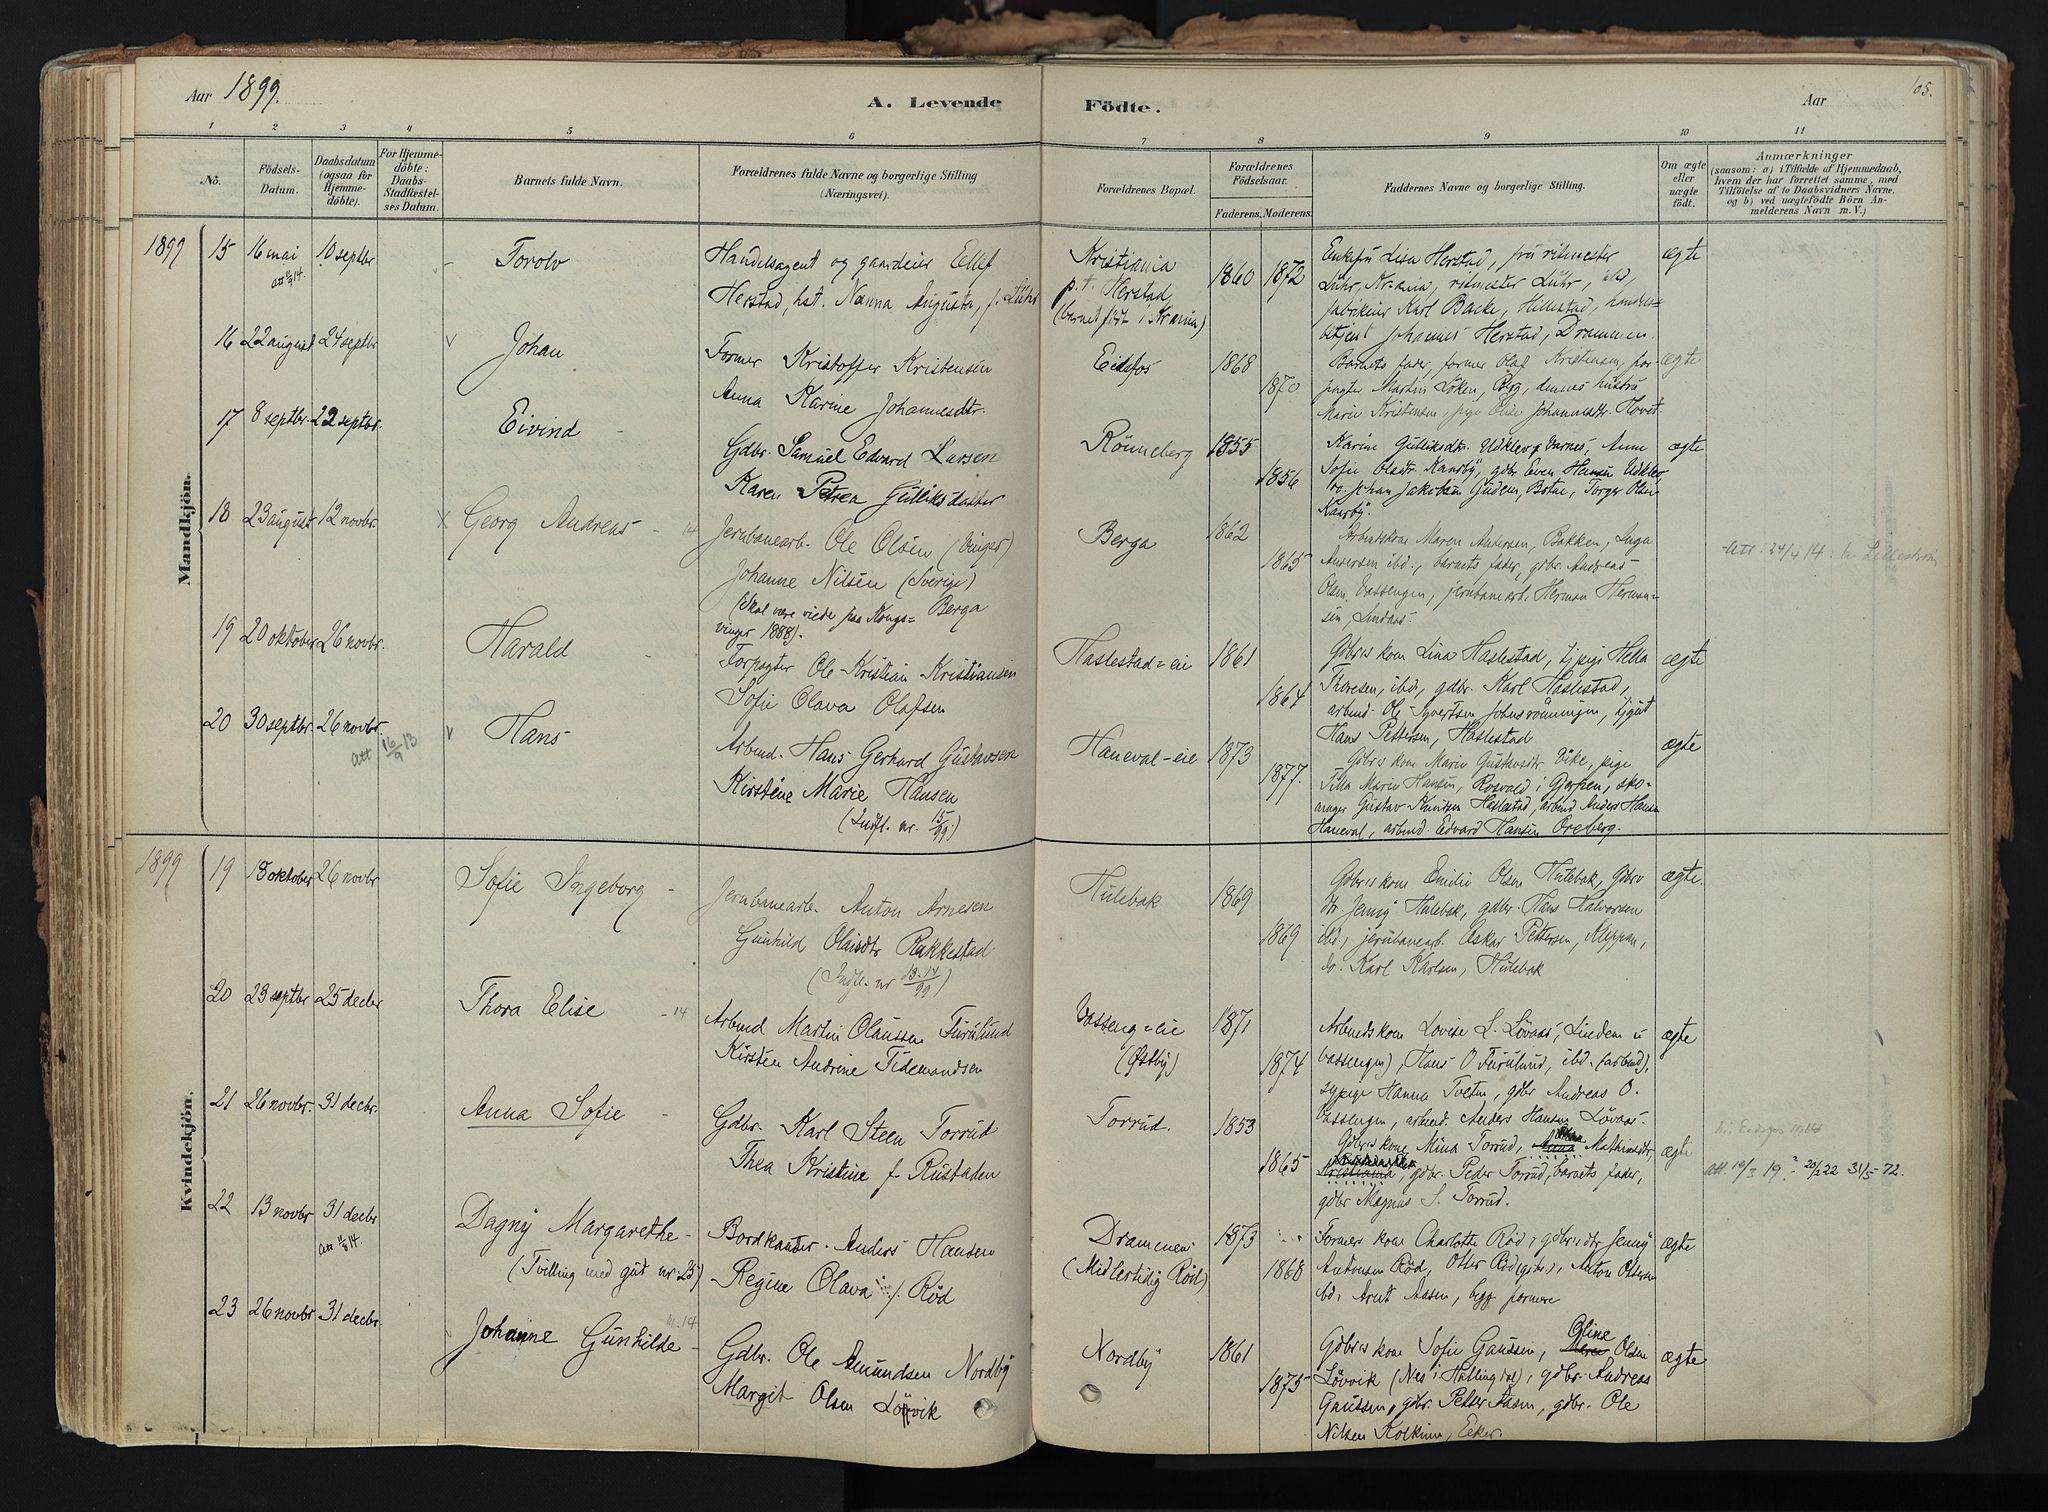 Aar 1899.
A. Levende
Födte.
Aar
105.
1 2 3 4 5 6 7 8 9 10 11
No.
Födsels-
Datum.
Daabsdatum
(ogsaa for
Hjemme-
döbte).
For Hjemme-
döbte:
Daabs-
Stadfæstel-
ses Datum.
Barnets fulde Navn.
Forældrenes fulde Navne og borgerlige Stilling
(Næringsvei).
Forældrenes Bopæl.
Forældrenes
Födselsaar.
Faderens. Moderens.
Faddernes Navne og borgerlige Stilling.
Om ægte
eller
uægte
födt.
Anmærkninger
(saasom: a) i Tilfælde af Hjemmedaab,
hvem der har forrettet samme, med
Tilföielse af to Daabsvidners Navne,
og b) ved uægtefödte Börn An-
melderens Navn m. V.)
Mandkjön.
1899 15 16 mai 10 septbr
att 11/9 14.
Torolv
Handelsagent og gaardeier Ellef
Herstad, hst. Nanna Augusta, f. Lühr
Kristiania
p.t. Herstad
(barnet født i Krania)
1860 1872
Enkefru Lisa Herstad, fru ritmester
Lühr, Krania, ritmester Lühr, ibd,
fabrikeier Karl Backe, Hillestad, handels-
betjent Johannes Herstad, Drammen.
ægte
16 22 august 24 septbr
Johan
Former Kristoffer Kristensen
Anna Karine Johannesdtr.
Eidsfos
1868
1870
Barnets fader, former Olaf Kristensen, for-
pagter Martin Löken, Berg, dennes hustru
Marie Kristensen, pige Elise Johannesdtr. Hovet.
ægte
17 8 septbr. 22 septbr.
Eivind
Gdbr. Samuel Edvard Larsen
Karen Petrea Gulliksdatter
Rönneberg
1855
1856
Karine Gulliksdtr. Vidklev, Anne
Sofie Olsdtr. Kaarby, gdbr Even Hansen
Johan Jakobsen Gudem, Botne, Torger Olsen
Kaarby.
ægte
18 23 august 12 novbr.
Georg Andreas - 14
Jernbanearb. Ole Olsen (Vinger)
Johanne Nilsen (Sverige)
(Skal være viede paa Kongs- Berga
vinger 1888).
Berga
1862
1865
Arbeidskone Maren Andersen, Bakken, Inga
Andersen ibd., barnets fader, gdbr. Andreas
Olsen Vassengen, jernbanearb. Herman Herman-
sen, Lindaas.
Att. 24/4 14. Lilleström
19 20 oktober 26 novbr.
Harald
Forpagter Ole Kristian Kristiansen
Sofie Olava Olafsen
Haslestad-eie
1861
1864
Gdbrs kone Lina Haslestad, tjpige Hella
Thoresen, ibd, gdbr. Karl Haslestad,
arbmd. Ole Syvertsen Johnsrönningen, tjgut
Hans Pettersen, Haslestad
ægte
20 30 septbr. 26 novbr.
att 16/9 13
Hans
Arbmd. Hans Gerhard Gustavsen
Kirstine Marie Hansen
(Indfl. nr. 15/99)
Haneval-eie
1873
1877.
Gdbrs kone Marie Gustavsdtr. Vike, pige
Tilla Marie Hansen, Rosvald i Gjerpen, sko-
mager Gustav Knudsen Haslestad, arbmd Anders Hansen
Haneval, arbmd. Edvard Hansen Oreberg.
ægte
Kvindekjön.
1899 19 18 oktober 26 novbr
Sofie Ingeborg -
Jernbanearb. Anton Arnesen
Gunhild Olaisdtr Rakkestad
(Indfl. nr 13-14/99)
Hulebak
1869
1869
Gdbrs kone Emilie Olsen Hulebak, gdbr
dtr. Jenny Hulebak, gdbr. Hans Halvorsen
ibd., jernbanearb. Oskar Pettersen, Kleppan,
do. Karl Karlsen, Hulebak
ægte.
20 23 septbr 25 decbr
Thora Elise - 14
Arbmd Martin Olaussen Furulund
Kirsten Andrine Tidemandsen
Vasseng-eie
(Østby)
1871
1874
Arbmds kone Lovise L. Lövaas, Linden u
Vassengen), Hans O Furulund, ibd. (arbmd),
sypige Hanna Tveten, gdbr Andreas O.
Vassengen, arbmd. Anders Hansen Lövaas.
ægte
21 26 novbr. 31 decbr.
Anna Sofie -
Gdbr. Karl Steen Torrud
Thea Kristine f. Rustaden
Torrud.
1853
1865
Gdbrs kone Mina Torrud, Mathisendtr,
Kristrand, gdbr. Peder Torrud, barnets fader,
gdbr Magnus S. Torrud.
ægte
Att. 19/3 19 20/2 22 31/5-72.
22 13 novbr 31 decbr
att 11/8 14.
Dagny Margarethe -
(Tvilling med gut nr. 25)
Bordkanter. Anders Hansen
Regine Olava f. Rød
Drammen
(Midlertidig Rød)
1873
1868
Formers kone Charlotte Rød, gdbrsdtr Jenny
Andersen Rød, Otter Rød (gdbr.), Anton Ottersen
ibd, Arnt Aasen, begge formere
ægte
23 26 novbr 31 decbr.
14
Johanne Gunhilde -
Gdbr. Ole Amundsen Nordby
Margit Olsen Lövvik
Nordby
1861
1875
Gdbrs kone Sofie Gaussen, Oline Olsen
Lövvik (Nes i Hallingdal), gdbr. Andreas
Gaussen, gdbr. Petter Aasen, gdbr. Ole
Nilsen Kolkinn, Eker.
ægte